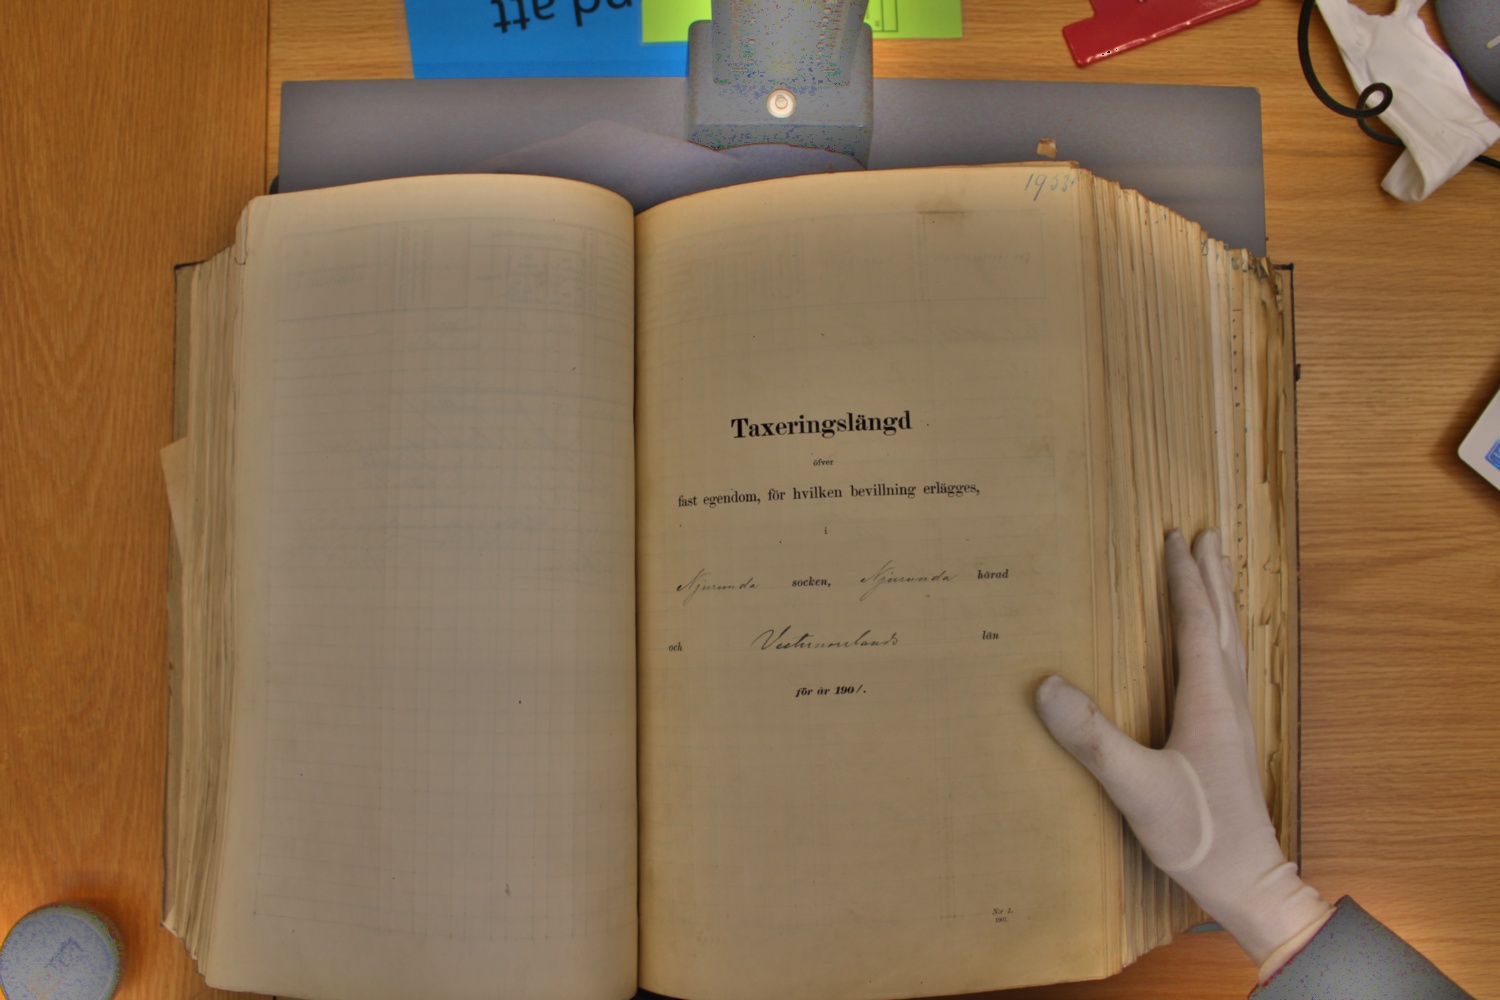 nd att
1953.
Taxeringslängd
öfver
fast egendom, för hvilken bevillning erlägges,
i
Njurunda socken, Njurunda härad
och Vesternorrlands län
för år 1901.
N:r 1.